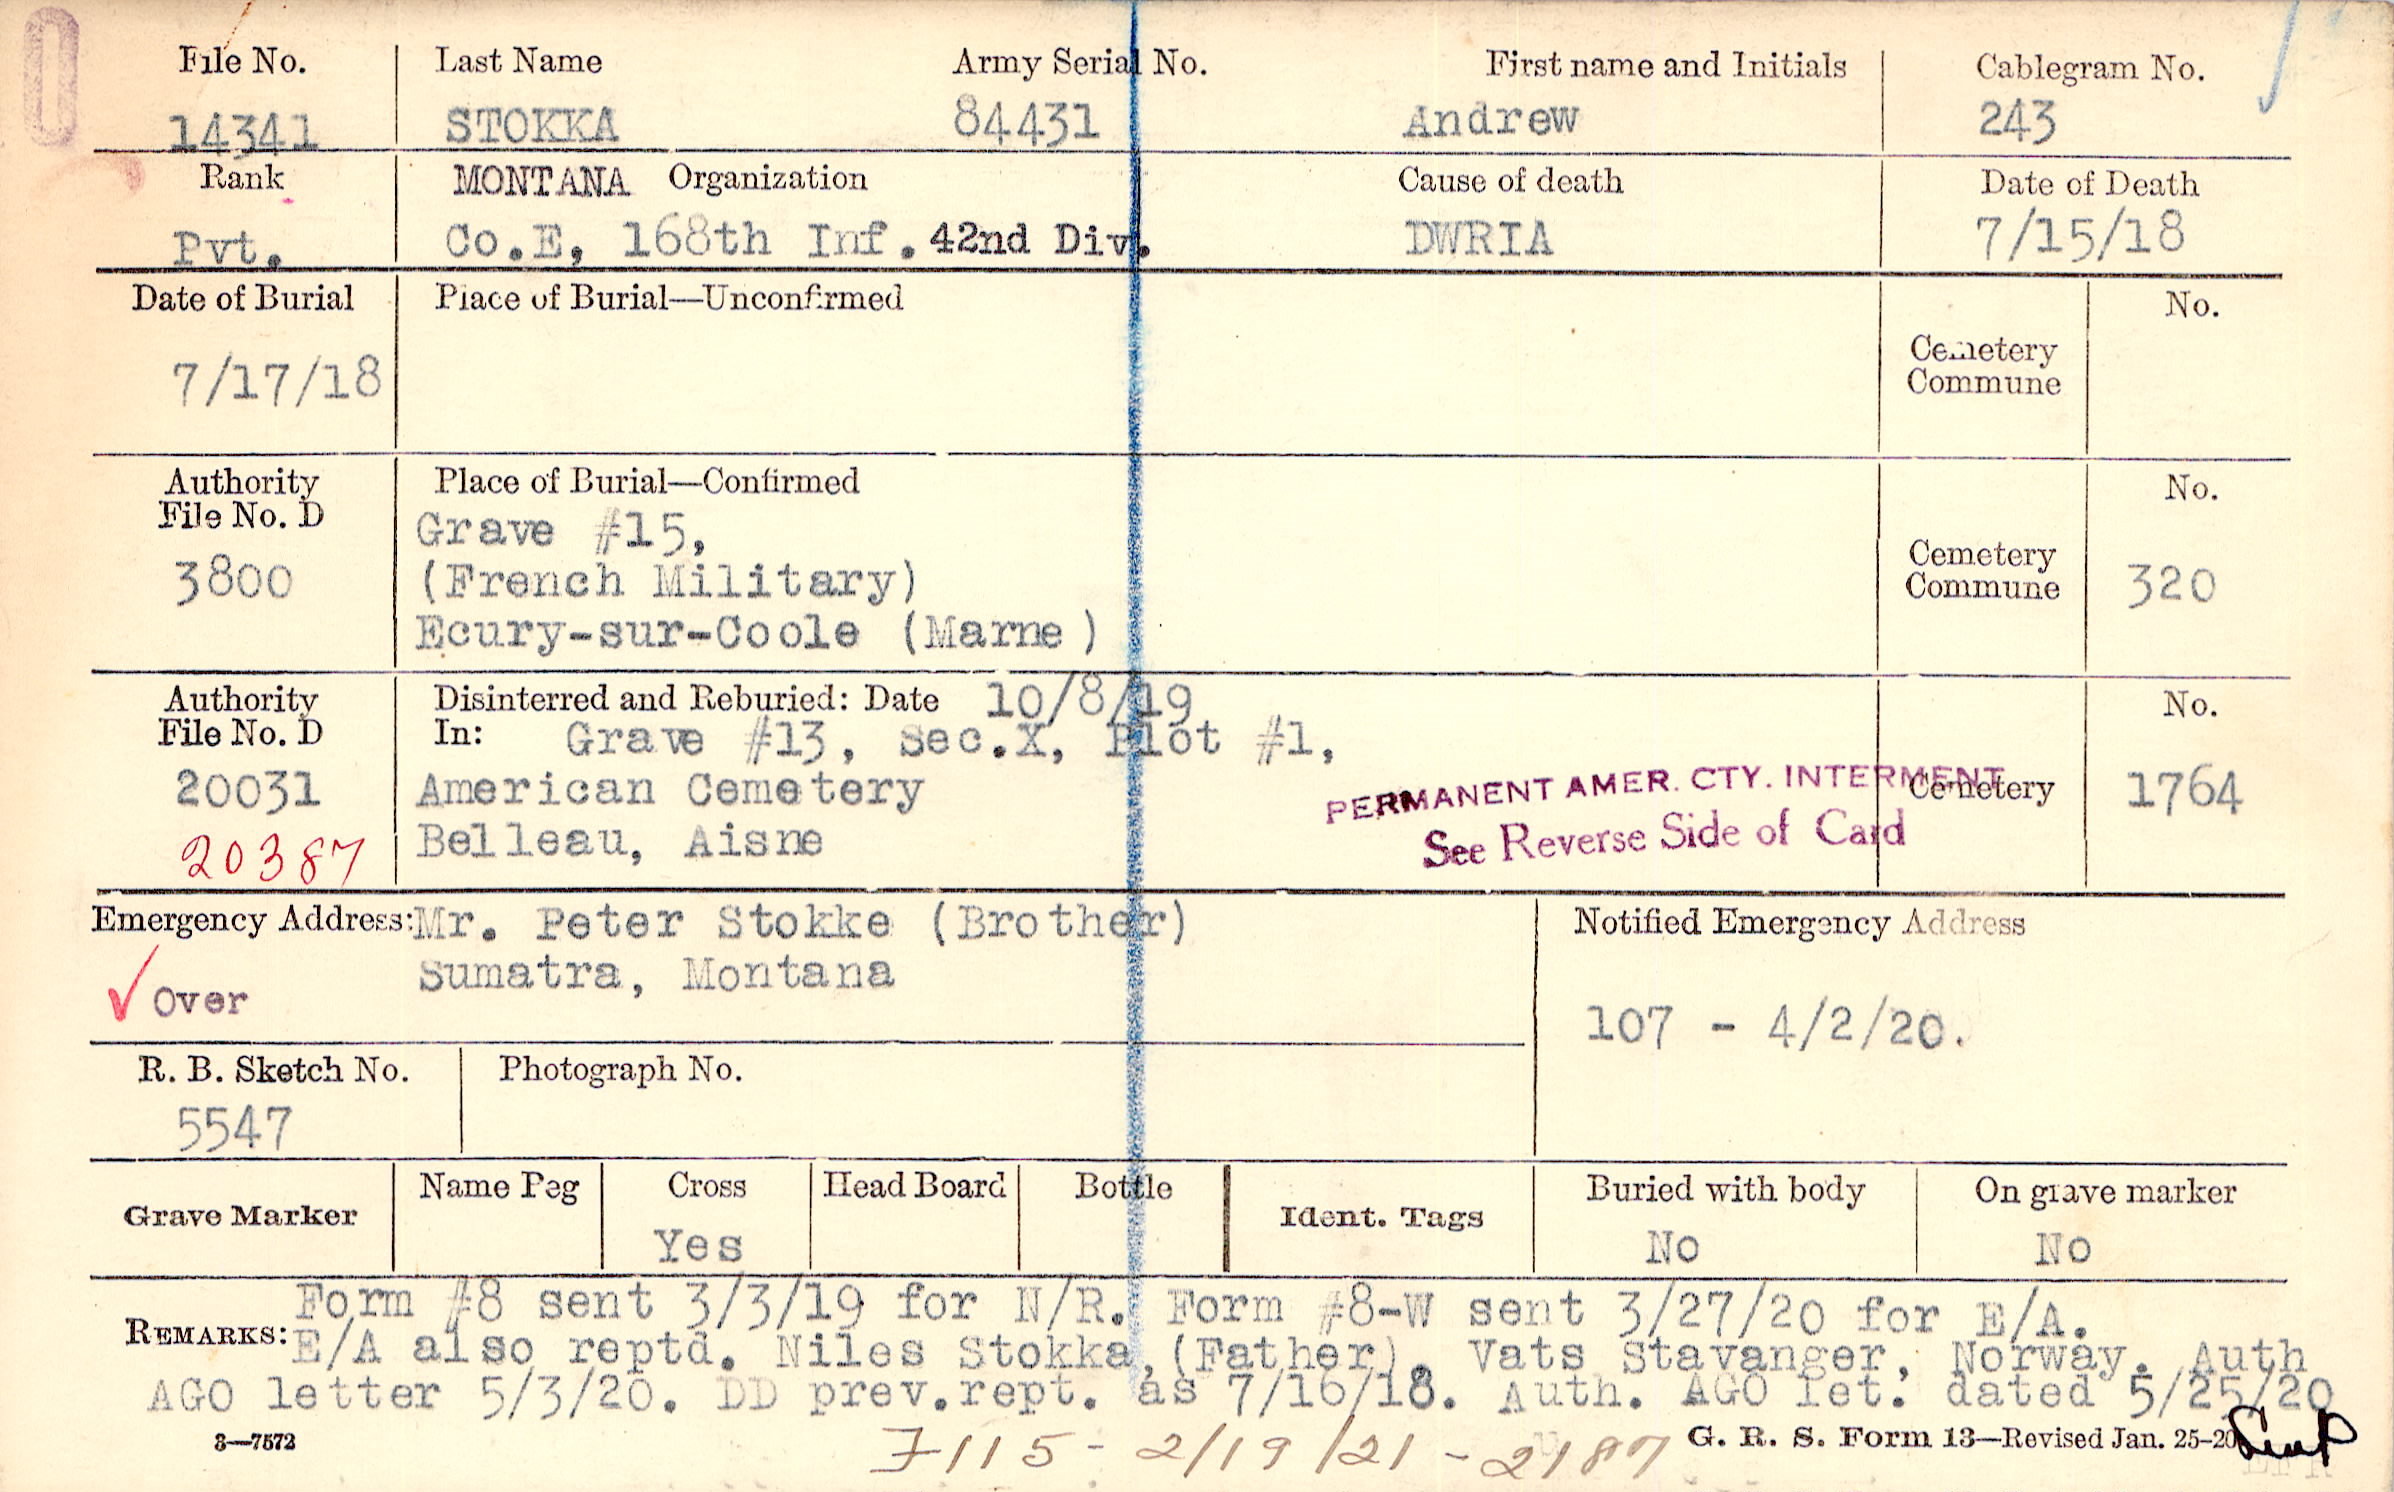 File No. Last Name Army Serial No. First name and Initials Cablegram No.
14341 STOKKA 84431 Andrew 243
Rank MONTANA Organization Cause of death Date of Death
Pvt. Co.E, 168th Inf. 42nd Div. DWRIA 7/15/18
Date of Burial Place of Burial—Unconfirmed No.
7/17/18 Cemetery
Commune
Authority Place of Burial—Confirmed No.
File No. D Grave #15,
3800 (French Military) Cemetery
Commune 320
Ecury-sur-Coole (Marne)
Authority Disinterred and Reburied: Date 10/8/19 No.
File No. D In: Grave #13, Sec.X, Plot #1,
20031 American Cemetery PERMANENT AMER. CTY. INTERMENT Cemetery 1764
20387 Belleau, Aisne See Reverse Side of Card
Emergency Address: Mr. Peter Stokke (Brother) Notified Emergency Address
Over Sumatra, Montana
107 - 4/2/20.
R. B. Sketch No. Photograph No.
5547
Grave Marker Name Peg Cross Head Board Bottle Ident. Tags Buried with body On grave marker
Yes No No
Form #8 sent 3/3/19 for N/R. Form #8-W sent 3/27/20 for E/A.
REMARKS: E/A also reptd. Niles Stokka,(Father), Vats Stavanger, Norway. Auth
AGO letter 5/3/20. DD prev.rept. as 7/16/18. Auth. AGO let. dated 5/25/20
3—7572 G. R. S. Form 13—Revised Jan. 25-20
7115 - 2/19/21 - 2187